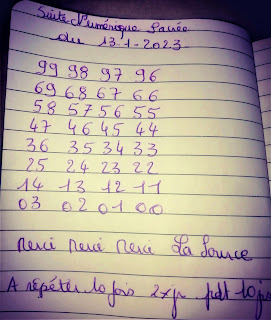 Suite Numérique Sacrée
du 13-1-2023
99 98 97 96
69 68 67 66
58 57 56 55
47 46 45 44
36 35 34 33
25 24 23 22
14 13 12 11
03 02 01 00
Merci Merci Merci La Source
A répéter 10 fois 2x/jr pdt 10 jrs